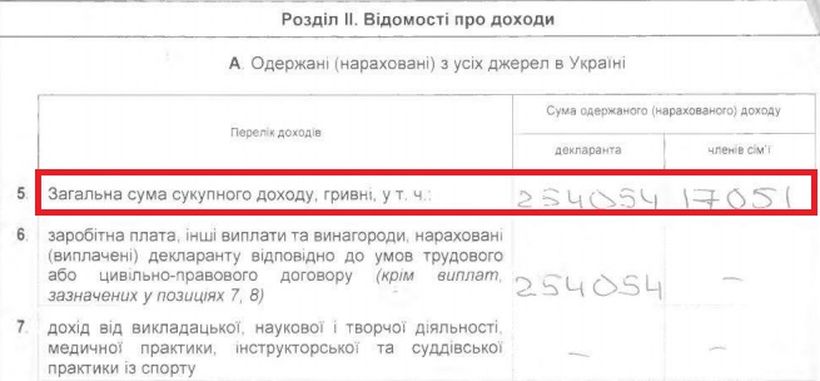 Розділ II. Відомості про доходи
А. Одержані (нараховані) з усіх джерел в Україні
Перелік доходів
Сума одержаного (нарахованого) доходу
декларанта
членів сім'ї
5. Загальна сума сукупного доходу, гривні, у т. ч.: 254054 17051
6. заробітна плата, інші виплати та винагороди, нараховані
(виплачені) декларанту відповідно до умов трудового
або цивільно-правового договору (крім виплат,
зазначених у позиціях 7, 8) 254054 –
7. дохід від викладацької, наукової і творчої діяльності,
медичної практики, інструкторської та суддівської
практики із спорту – –